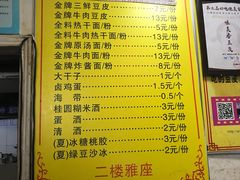 金牌三鲜豆皮
金牌牛肉豆皮 13元/份
全料热干面/粉 5元/份
全料牛肉热干面/粉 13元/份
金牌原汤面/粉 5元/份
金牌牛肉面/粉 13元/份
金牌炸酱面/粉 8元/份
大干子 1元/个
卤鸡蛋 1.5/个
海 带 0.5/个
桂圆糊米酒 3元/份
蛋 酒 3元/份
清 酒 2元/份
(夏)冰糖桃胶 3元/份
(夏)绿豆沙冰 2元/份
二楼雅座